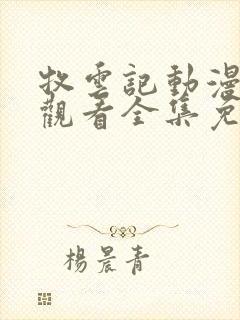 牧雲記動漫
觀看全集免
楊晨青